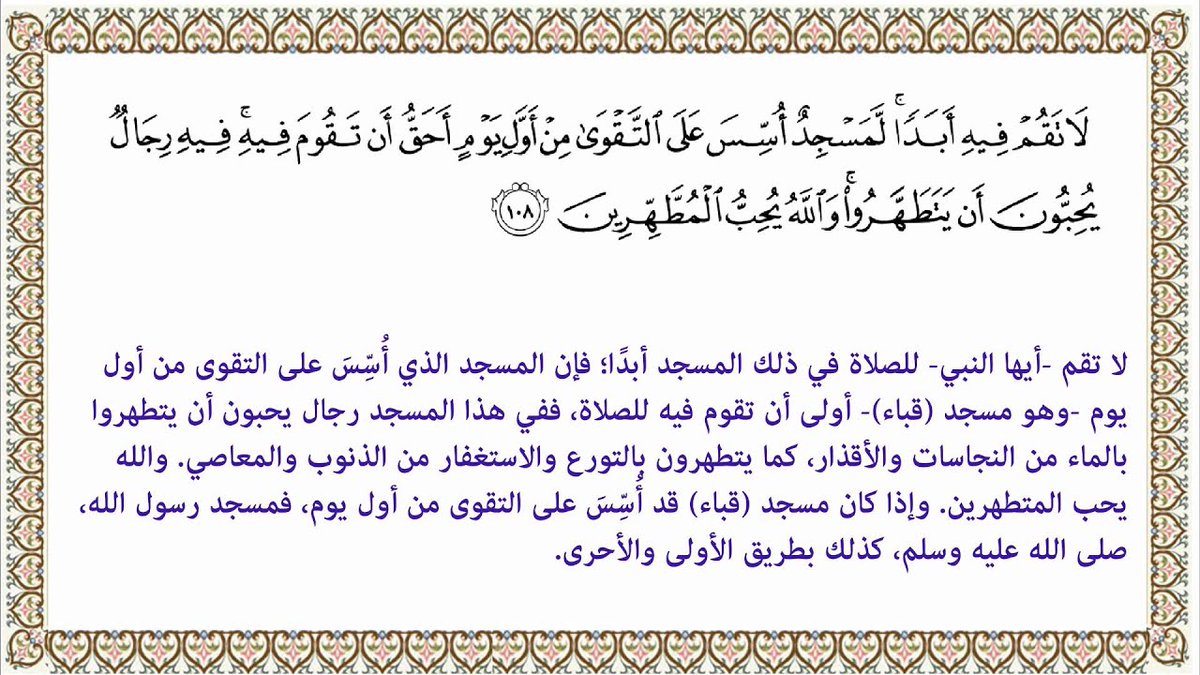 لَا تَقُمْ فِيهِ أَبَدًا ۚ لَّمَسْجِدٌ أُسِّسَ عَلَى التَّقْوَىٰ مِنْ أَوَّلِ يَوْمٍ أَحَقُّ أَن تَقُومَ فِيهِ ۚ فِيهِ رِجَالٌ
يُحِبُّونَ أَن يَتَطَهَّرُوا ۚ وَاللَّهُ يُحِبُّ الْمُطَّهِّرِينَ ١٠٨
لا تقم -أيها النبي- للصلاة في ذلك المسجد أبدًا؛ فإن المسجد الذي أُسِّسَ على التقوى من أول
يوم -وهو مسجد (قباء)- أولى أن تقوم فيه للصلاة، ففي هذا المسجد رجال يحبون أن يتطهروا
بالماء من النجاسات والأقذار، كما يتطهرون بالتورع والاستغفار من الذنوب والمعاصي. والله
يحب المتطهرين. وإذا كان مسجد (قباء) قد أُسِّسَ على التقوى من أول يوم، فمسجد رسول الله،
صلى الله عليه وسلم، كذلك بطريق الأولى والأحرى.